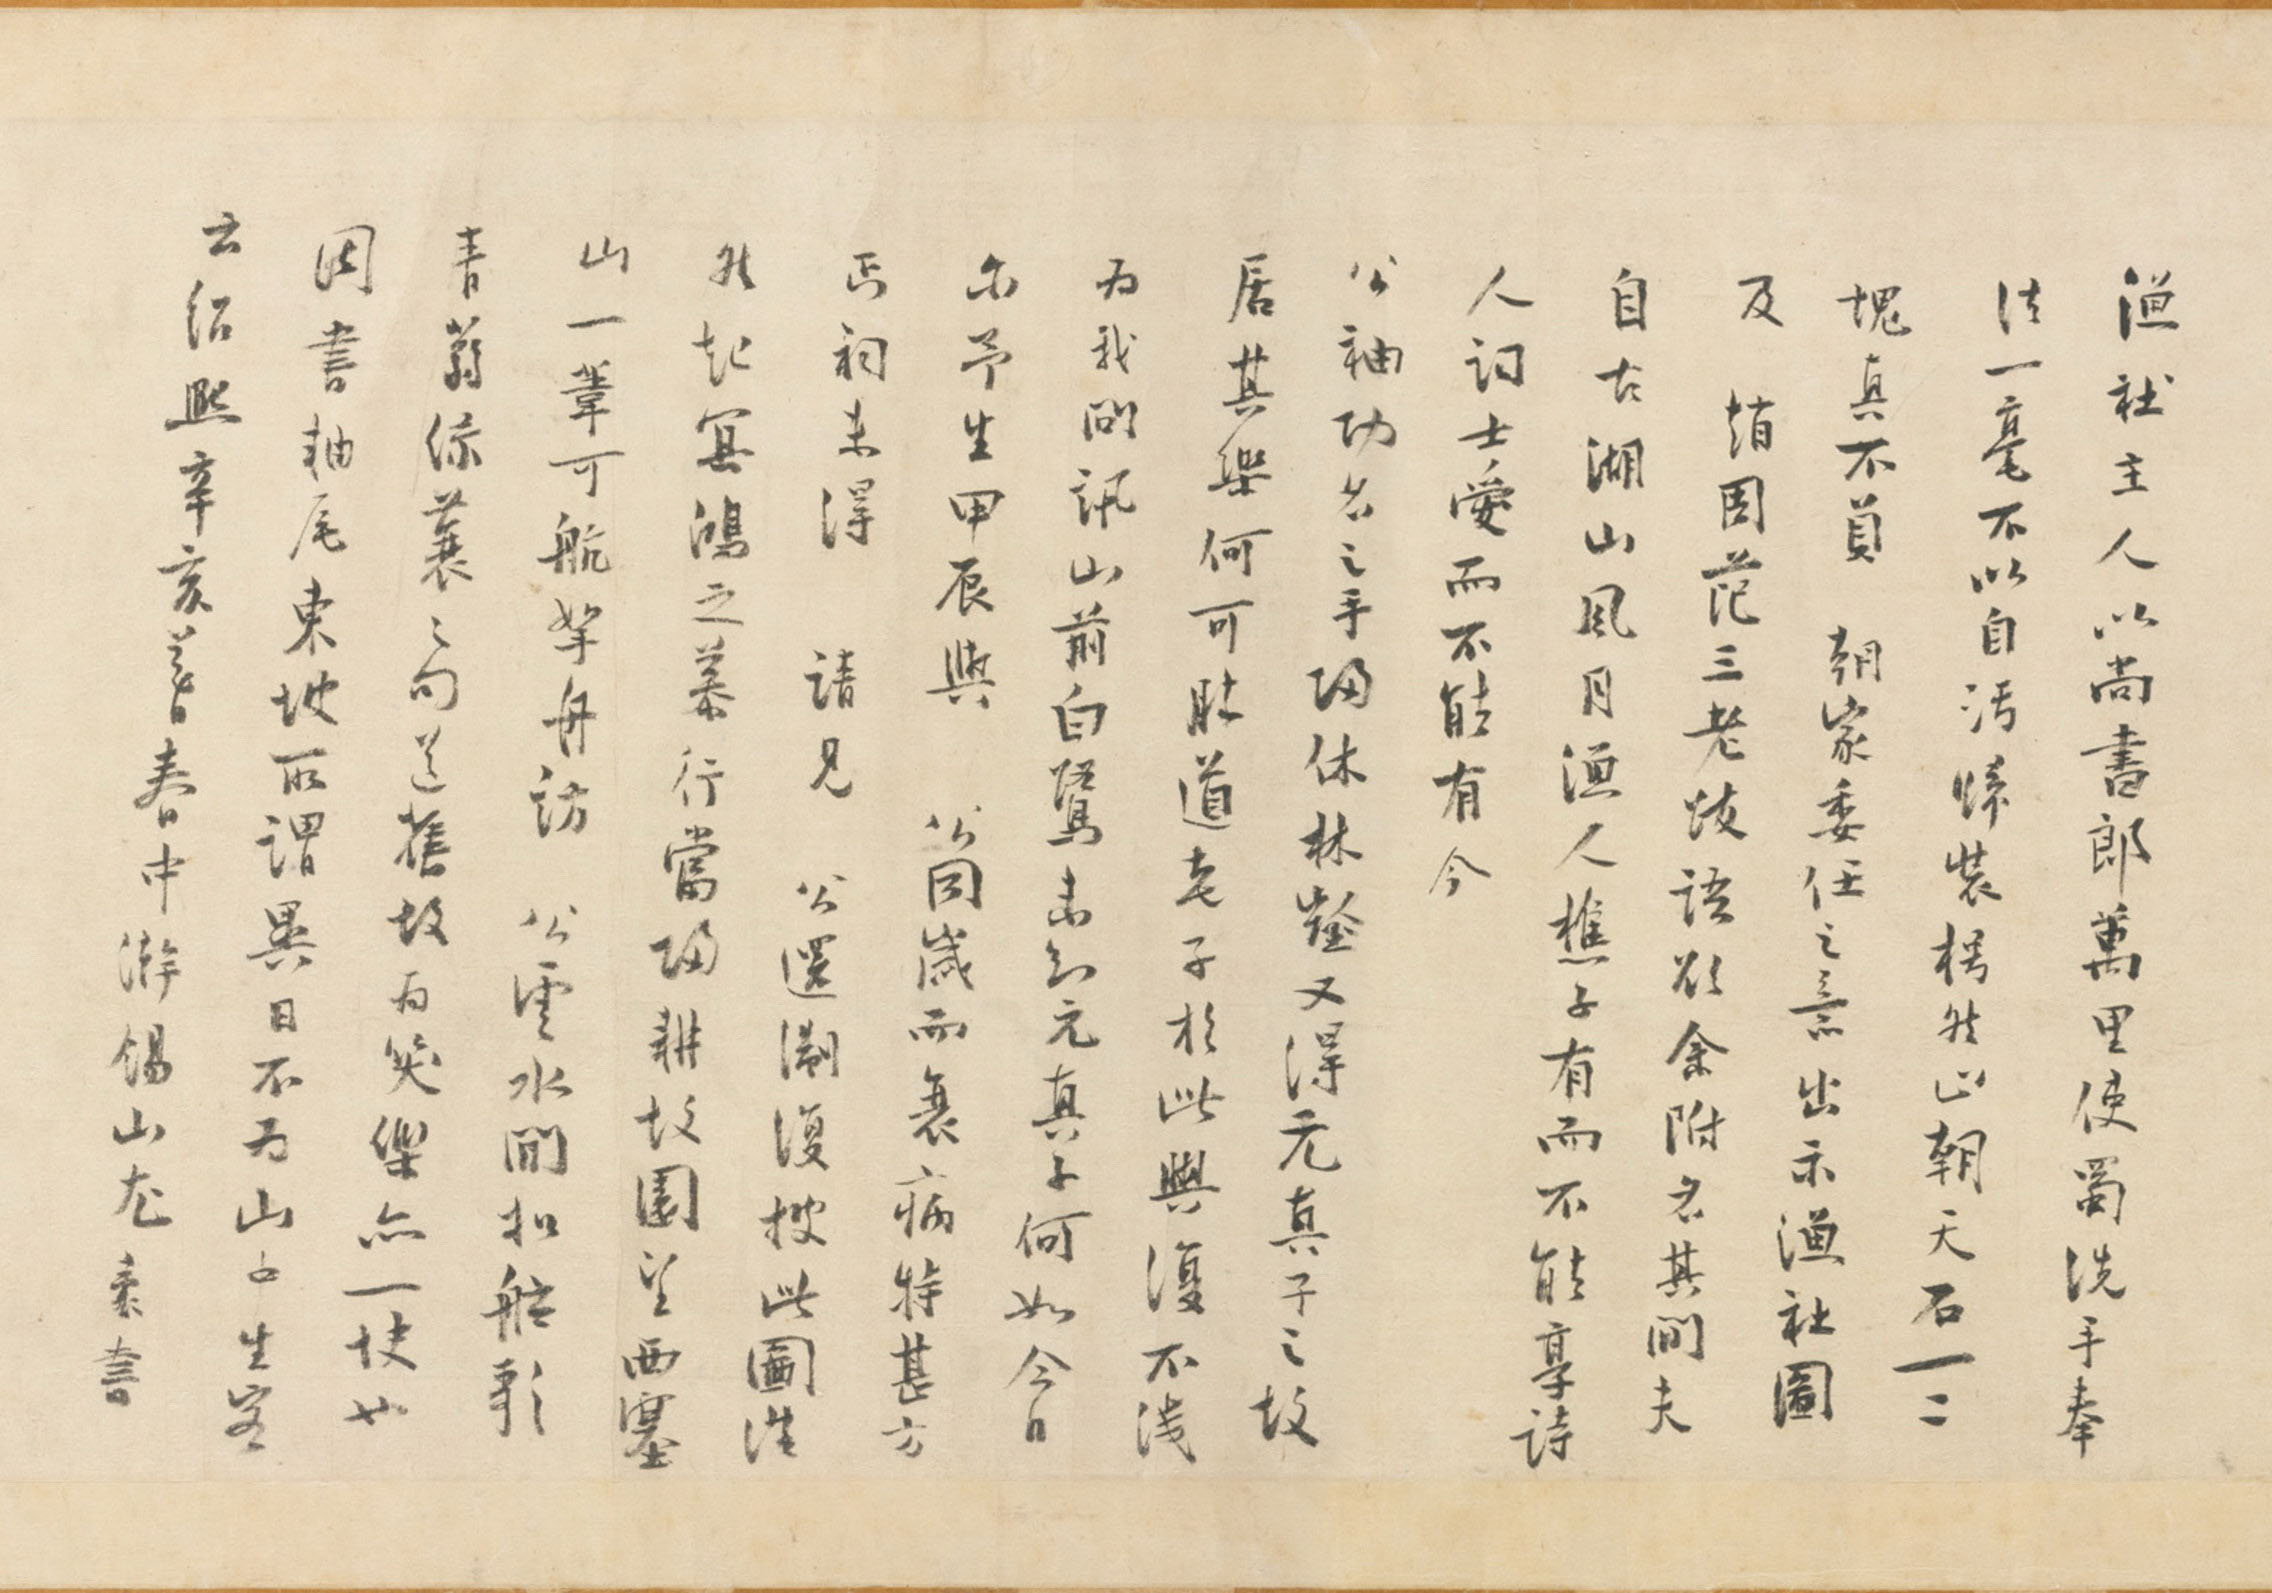 漁社主人以尚書郎萬里使蜀洗手奉
法一毫不以自汚歸裝枵然止朝天石一二
塊真不負 朝家委任之意出示漁社圖
及 指周范三老故語欲余附名其間夫
自古湖山風月漁人樵子有而不能享詩
人詞士愛而不能有今
公袖功名之手歸休林壑又得元真子之故
居其樂何可勝道老子於此興復不淺
為我問訊山前白鷺未知元真子何如今日
尔予生甲辰與 公同歲而衰病特甚方
丐祠未得 請見 公還湖復披此圖浩
然起冥鴻之慕行當歸耕故園望西塞
山一葦可航拏舟訪 公雲水間扣舷歌
青蒻綠蓑之句道舊故為笑樂亦一快也
因書軸尾東坡所謂異日不為山中生客
云紹熙辛亥暮春中澣錫山尤袤書